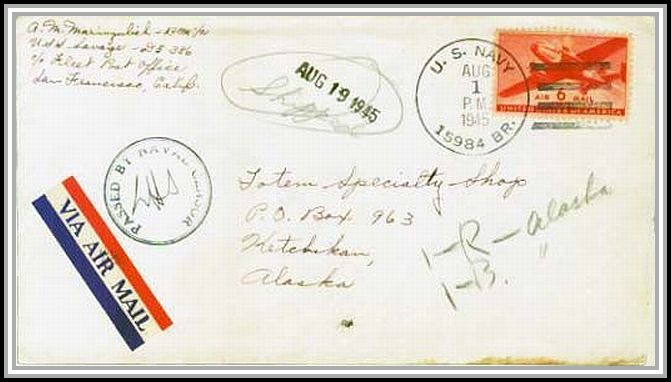 A. M. Maringulich - BM 1/c
USS Savage - DE 386
c/o Fleet Post Office
San Francisco, Calif.
AUG 19 1945
Shipped
U.S. NAVY
AUG
1
P.M.
1945
15984 BR.
AIR 6 MAIL
UNITED STATES OF AMERICA
PASSED BY NAVAL CENSOR
VIA AIR MAIL
Totem Specialty Shop
P.O. Box 963
Ketchikan,
Alaska
1-R - Alaska
1-B. "